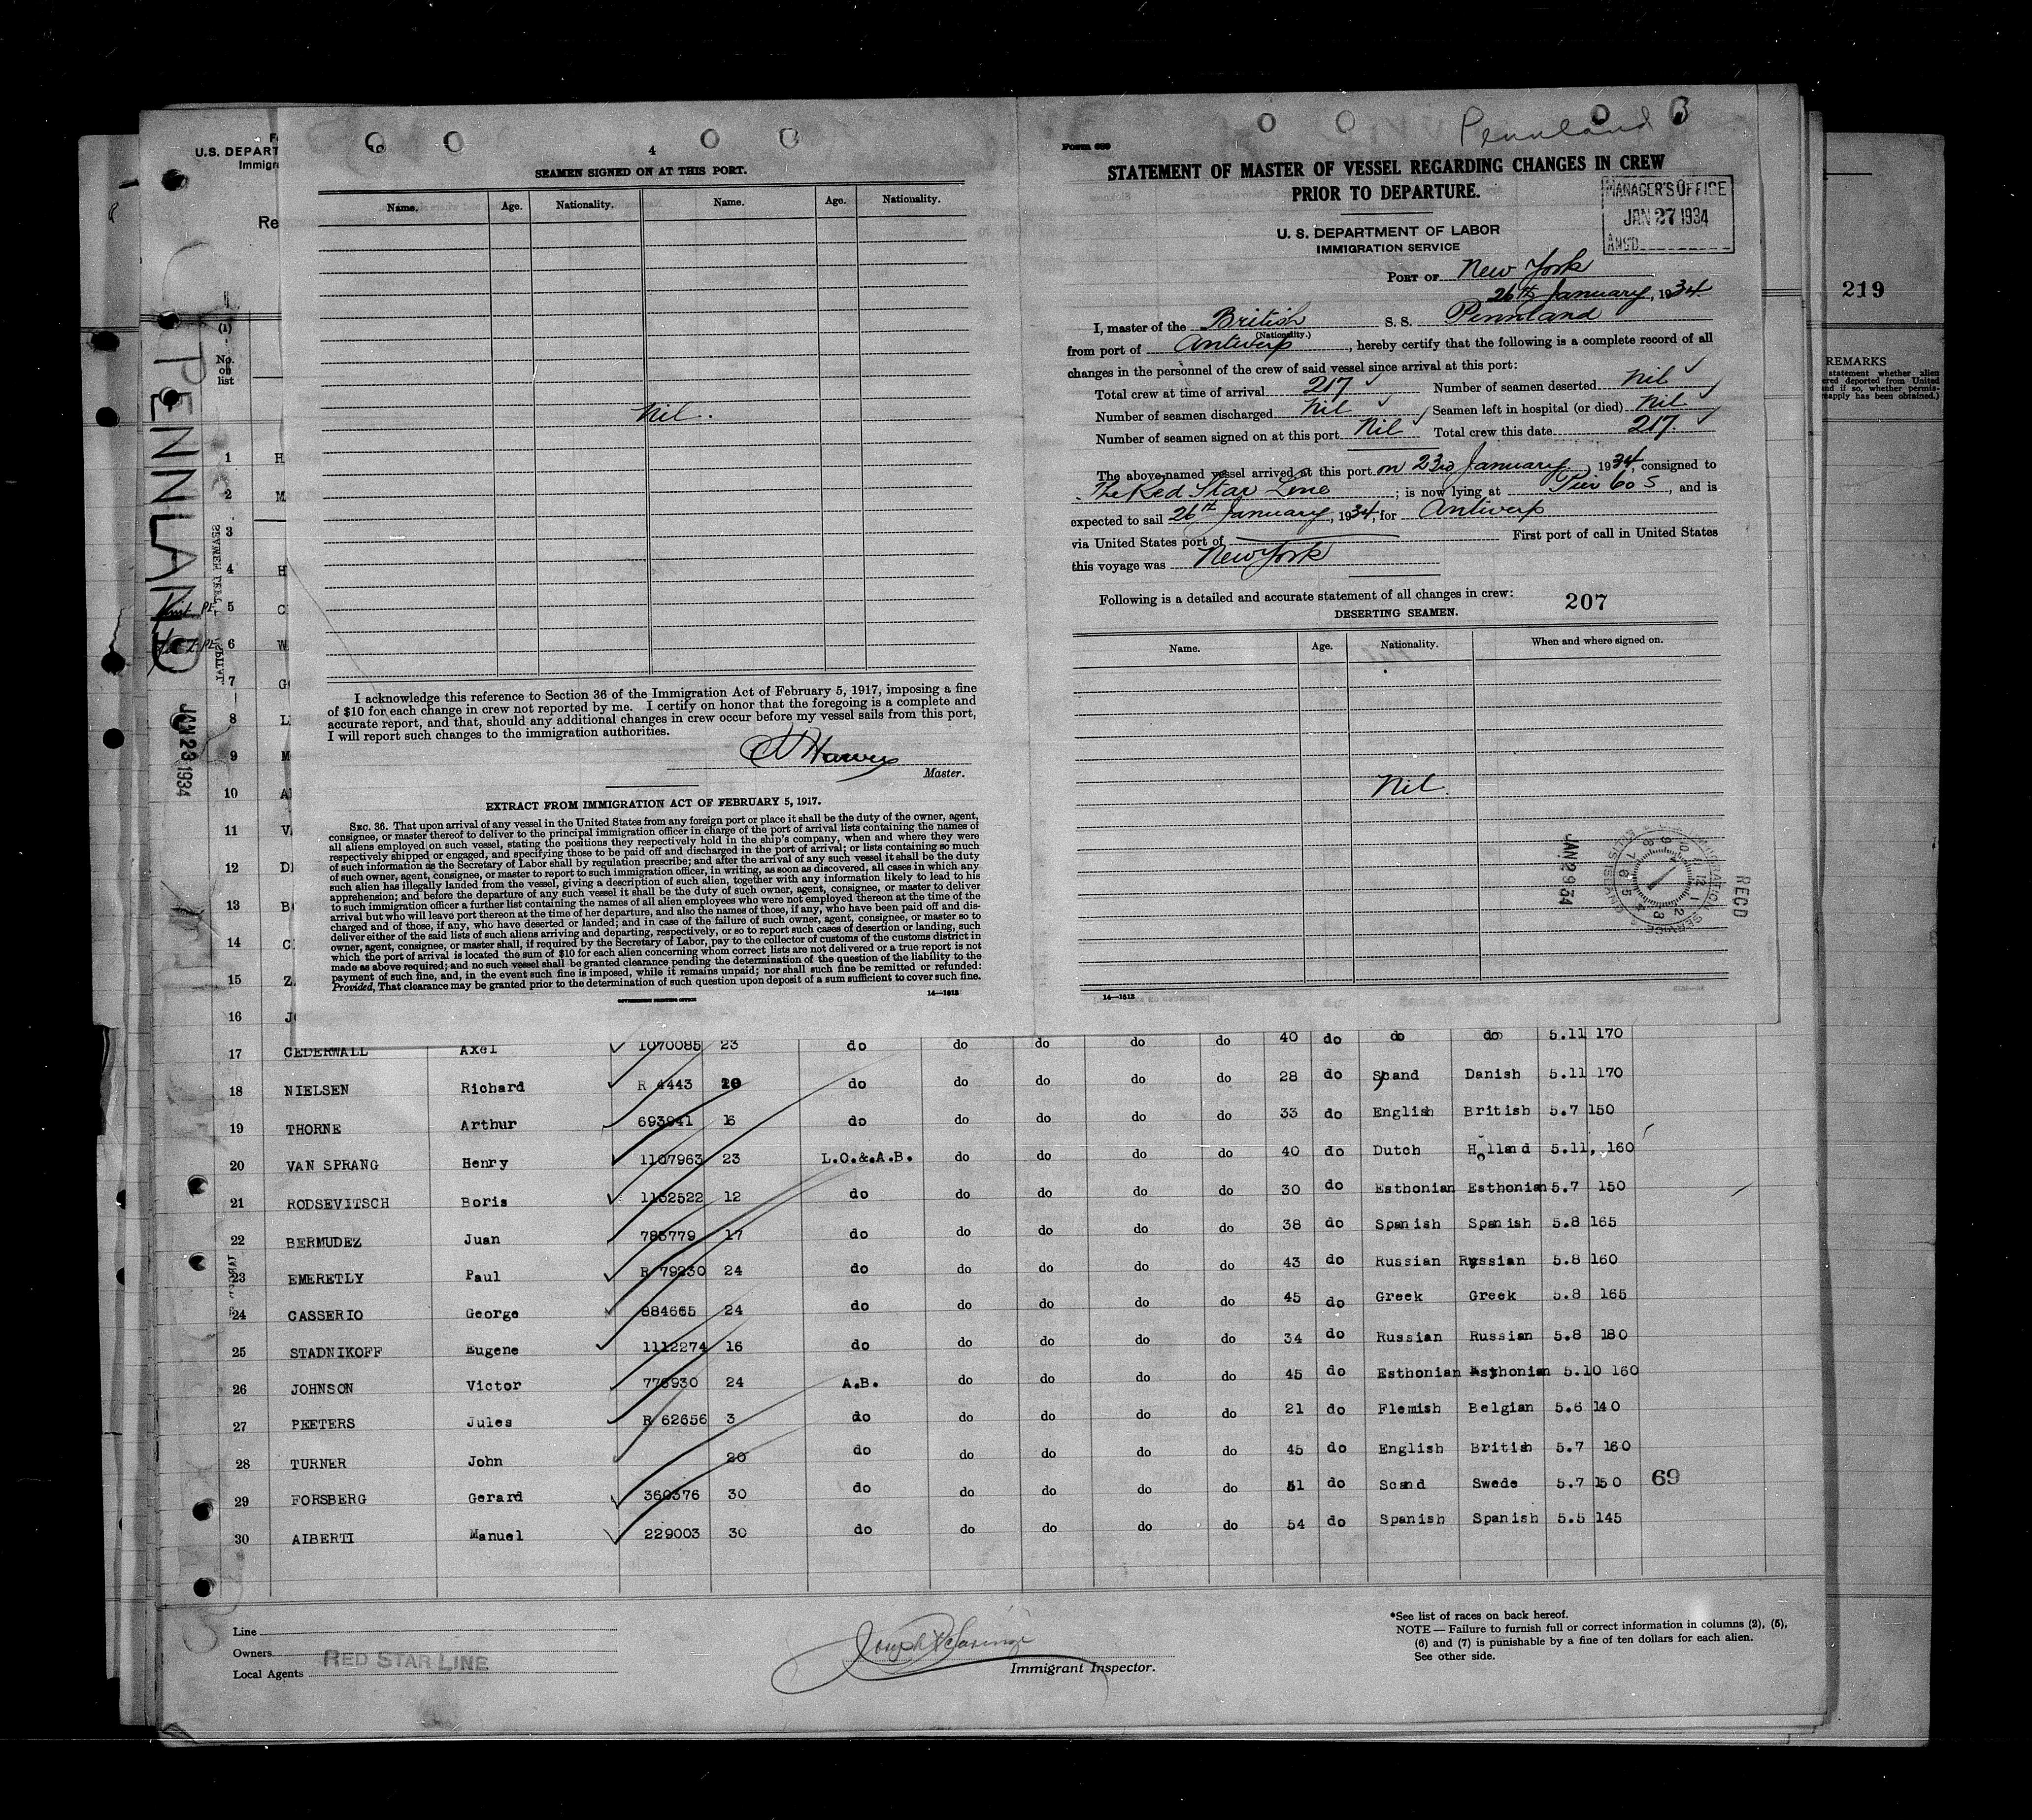 4
SEAMEN SIGNED ON AT THIS PORT.
Name. Age. Nationality. Name. Age. Nationality.
Nil.
I acknowledge this reference to Section 36 of the Immigration Act of February 5, 1917, imposing a fine
of $10 for each change in crew not reported by me. I certify on honor that the foregoing is a complete and
accurate report, and that, should any additional changes in crew occur before my vessel sails from this port,
I will report such changes to the immigration authorities.
Master.
EXTRACT FROM IMMIGRATION ACT OF FEBRUARY 5, 1917.
SEC. 36. That upon arrival of any vessel in the United States from any foreign port or place it shall be the duty of the owner, agent,
consignee, or master thereof to deliver to the principal immigration officer in charge of the port of arrival lists containing the names of
all aliens employed on such vessel, stating the positions they respectively hold in the ship's company, when and where they were
respectively shipped or engaged, and specifying those to be paid off and discharged in the port of arrival; or lists containing so much
of such information as the Secretary of Labor shall by regulation prescribe; and after the arrival of any such vessel it shall be the duty
of such owner, agent, consignee, or master to report to such immigration officer, in writing, as soon as discovered, all cases in which any
such alien has illegally landed from the vessel, giving a description of such alien, together with any information likely to lead to his
apprehension; and before the departure of any such vessel it shall be the duty of such owner, agent, consignee, or master to deliver
to such immigration officer a further list containing the names of all alien employees who were not employed thereon at the time of the
arrival but who will leave port thereon at the time of her departure, and also the names of those, if any, who have been paid off and dis-
charged and of those, if any, who have deserted or landed; and in case of the failure of such owner, agent, consignee, or master so to
deliver either of the said lists of such aliens arriving and departing, respectively, or so to report such cases of desertion or landing, such
owner, agent, consignee, or master shall, if required by the Secretary of Labor, pay to the collector of customs of the customs district in
which the port of arrival is located the sum of $10 for each alien concerning whom correct lists are not delivered or a true report is not
made as above required; and no such vessel shall be granted clearance pending the determination of the question of the liability to the
payment of such fine, and, in the event such fine is imposed, while it remains unpaid; nor shall such fine be remitted or refunded:
Provided, That clearance may be granted prior to the determination of such question upon deposit of a sum sufficient to cover such fine.
GOVERNMENT PRINTING OFFICE 14—1612
Pennland
STATEMENT OF MASTER OF VESSEL REGARDING CHANGES IN CREW
PRIOR TO DEPARTURE.
MANAGER'S OFFICE
JAN 27 1934
ANS'D
U. S. DEPARTMENT OF LABOR
IMMIGRATION SERVICE
PORT OF New York
26th January, 1934
I, master of the British S. S. Pennland
(Nationality.)
from port of Antwerp, hereby certify that the following is a complete record of all
changes in the personnel of the crew of said vessel since arrival at this port:
Total crew at time of arrival 217 Number of seamen deserted Nil
Number of seamen discharged Nil Seamen left in hospital (or died) Nil
Number of seamen signed on at this port Nil Total crew this date 217
The above-named vessel arrived at this port on 23rd January, 1934, consigned to
The Red Star Line; is now lying at Pier 60 S, and is
expected to sail 26th January, 1934, for Antwerp
via United States port of First port of call in United States
this voyage was New York
Following is a detailed and accurate statement of all changes in crew: 207
DESERTING SEAMEN.
Name. Age. Nationality. When and where signed on.
Nil.
RECD
14—1612
219
REMARKS
U.S. DEPART
Immigr
Re
(1)
No.
on
list
PENNLAND
JAN 23 1934
1 H
2 M
3
4 H
5 C
6 W
7 G
8 L
9 M
10 A
11 V
12 D
13 B
14 C
15 Z
16 J
17 CEDERWALL Axel 1070085 23 do do do do do 40 do do do 5.11 170
18 NIELSEN Richard R 4443 20 do do do do do 28 do Scand Danish 5.11 170
19 THORNE Arthur 693941 16 do do do do do 33 do English British 5.7 150
20 VAN SPRANG Henry 1107963 23 L.O.&.A.B. do do do do 40 do Dutch Holland 5.11, 160
21 RODSEVITSCH Boris 1152522 12 do do do do do 30 do Esthonian Esthonian 5.7 150
22 BERMUDEZ Juan 785779 17 do do do do do 38 do Spanish Spanish 5.8 165
23 EMERETLY Paul R 79230 24 do do do do do 43 do Russian Russian 5.8 160
24 CASSERIO George 884665 24 do do do do do 45 do Greek Greek 5.8 165
25 STADNIKOFF Eugene 1112274 16 do do do do do 34 do Russian Russian 5.8 180
26 JOHNSON Victor 776930 24 A.B. do do do do 45 do Esthonian Esthonian 5.10 160
27 PEETERS Jules R 62656 3 do do do do do 21 do Flemish Belgian 5.6 140
28 TURNER John 20 do do do do do 45 do English British 5.7 160
29 FORSBERG Gerard 360376 30 do do do do do 51 do Scand Swede 5.7 150 69
30 AIBERTI Manuel 229003 30 do do do do do 54 do Spanish Spanish 5.5 145
Line
Owners
Local Agents RED STAR LINE
Immigrant Inspector.
*See list of races on back hereof.
NOTE — Failure to furnish full or correct information in columns (2), (5),
(6) and (7) is punishable by a fine of ten dollars for each alien.
See other side.